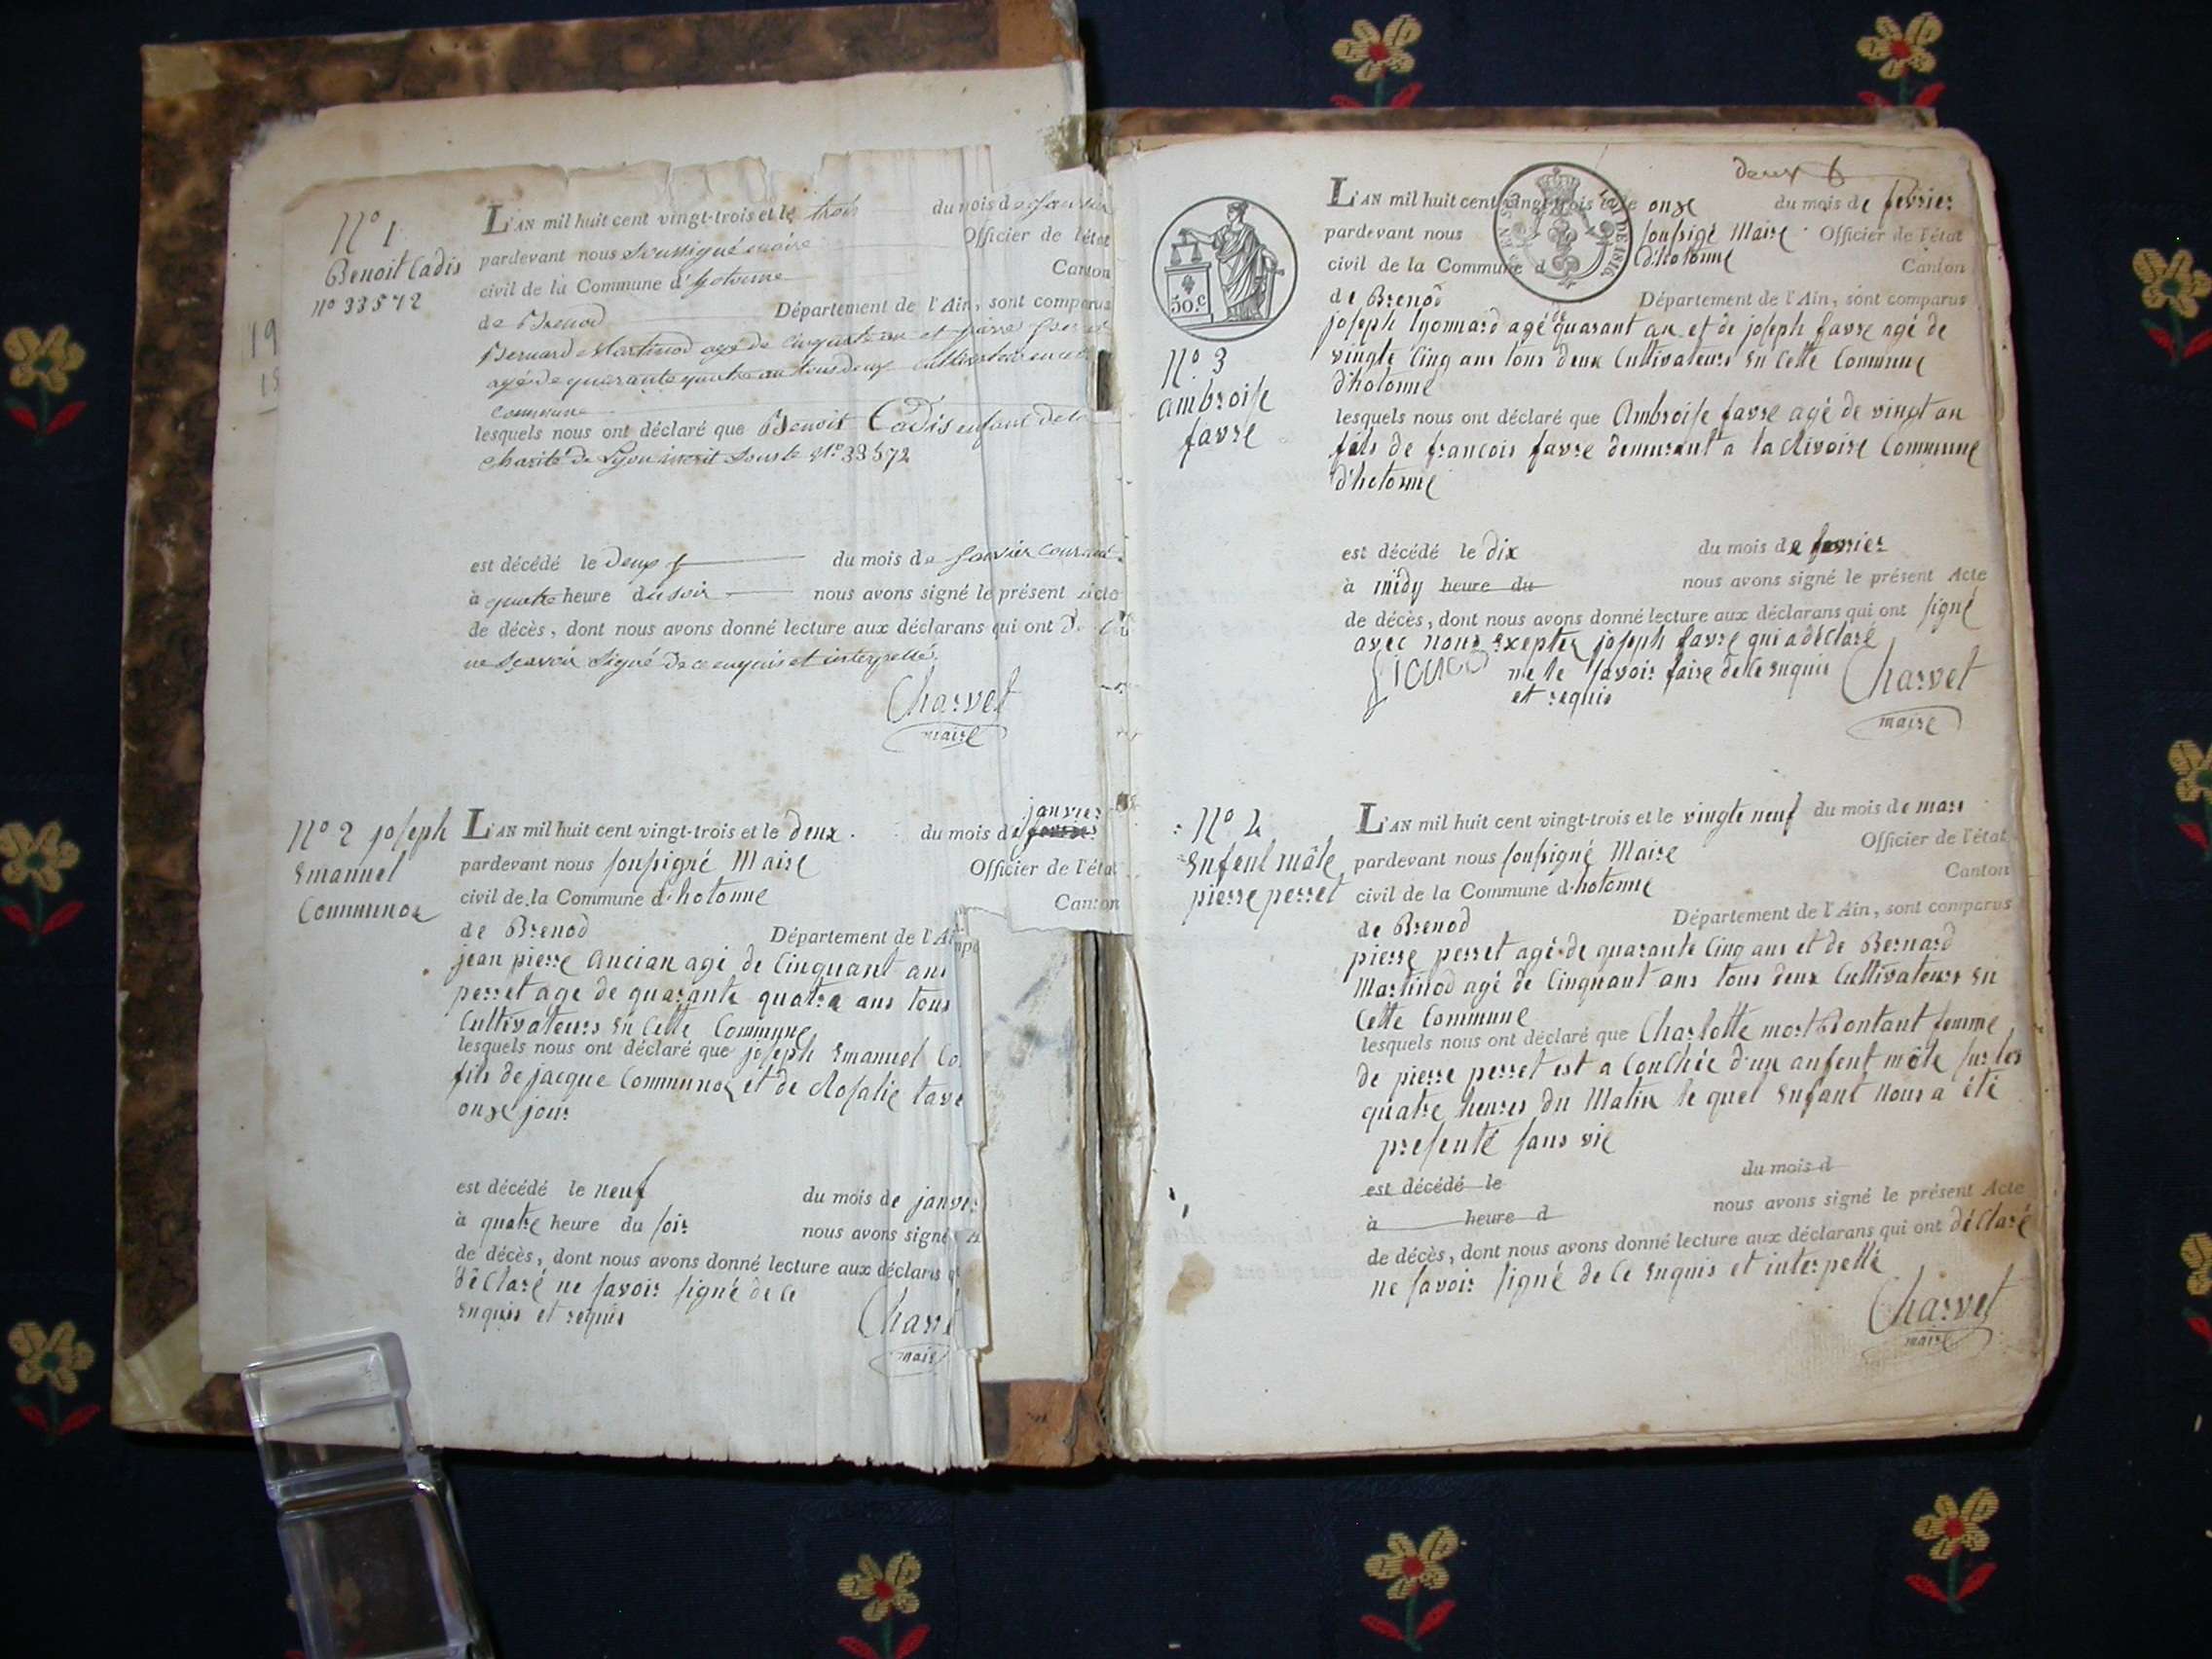 N.º 1
Benoit Cadis
nº 33572
19
L'AN mil huit cent vingt-trois et le trois du mois de Janvier
pardevant nous Soussigné maire Officier de l'état
civil de la Commune d'hotonne Canton
de Brenod Département de l'Ain, sont comparus
Bernard Martinod agé de cinquante an et pierre
agé de quarante quatre an tous deux cultivateurs en cette
commune
lesquels nous ont déclaré que Benoit Cadis enfant de la
charité de Lyon inscrit sous le nº 33572
est décédé le deux du mois de Janvier courant
à quatre heure du soir nous avons signé le présent Acte
de décès, dont nous avons donné lecture aux déclarans qui ont
ne scavoir signé de ce enquis et interpellé
Charvet
maire
Nº 2 joseph
Emanuel
L'AN mil huit cent vingt-trois et le deux du mois de janvier
pardevant nous soussigné Maire Officier de l'état
civil de la Commune d'hotonne Canton
de Brenod Département de l'Ai
jean pierre ancian agé de Cinquant ans
perret age de quarante quatre ans tous
Cultivateurs en Cette Commune
lesquels nous ont déclaré que joseph Emanuel Co
fils de jacque et de Rosalie tav
onze jour
est décédé le neuf du mois de janvi
à quatre heure du soir nous avons signé
de décès, dont nous avons donné lecture aux déclarans
déclaré ne savoir signé de ce
enquis et requis
Charvet
maire
deux
50.c
LOI DE 1816
Nº. 3
ambroise
favre
L'AN mil huit cent vingt-trois et le onze du mois de fevrier
pardevant nous sousigé Maire Officier de l'état
civil de la Commune d d'hotonne Canton
de Brenod Département de l'Ain, sont comparus
joseph lyonnard agé de quarant an et de joseph favre agé de
vingte Cinq ans tous deux Cultivateurs en Cette Commune
d'hotonne
lesquels nous ont déclaré que Ambroise favre agé de vingt an
fils de francois favre demurant a la Rivoire Commune
d'hotonne
est décédé le dix du mois de fevrier
à midy heure du nous avons signé le présent Acte
de décès, dont nous avons donné lecture aux déclarans qui ont signé
avec nous excepter joseph favre qui a déclaré
ne le savoir faire de ce enquis
et requis
Charvet
maire
Nº 4
enfent mâle
pierre perret
L'AN mil huit cent vingt-trois et le vingte neuf du mois de mars
pardevant nous sousigné Maire Officier de l'état
civil de la Commune d'hotonne Canton
de Brenod Département de l'Ain, sont comparus
pierre perret agé de quarante Cinq ans et de Bernard
Martinod agé de Cinquant ans tous deux Cultivateurs en
Cette Commune
lesquels nous ont déclaré que Charlotte mort Bontant femme
de pierre perret est a Couchée d'un anfent mâle sur les
quatre heures du Matin le quel enfant nous a été
presenté sans vie
est décédé le du mois d
à heure d nous avons signé le présent Acte
de décès, dont nous avons donné lecture aux déclarans qui ont déclaré
ne savoir signé de ce enquis et interpellé
Charvet
maire